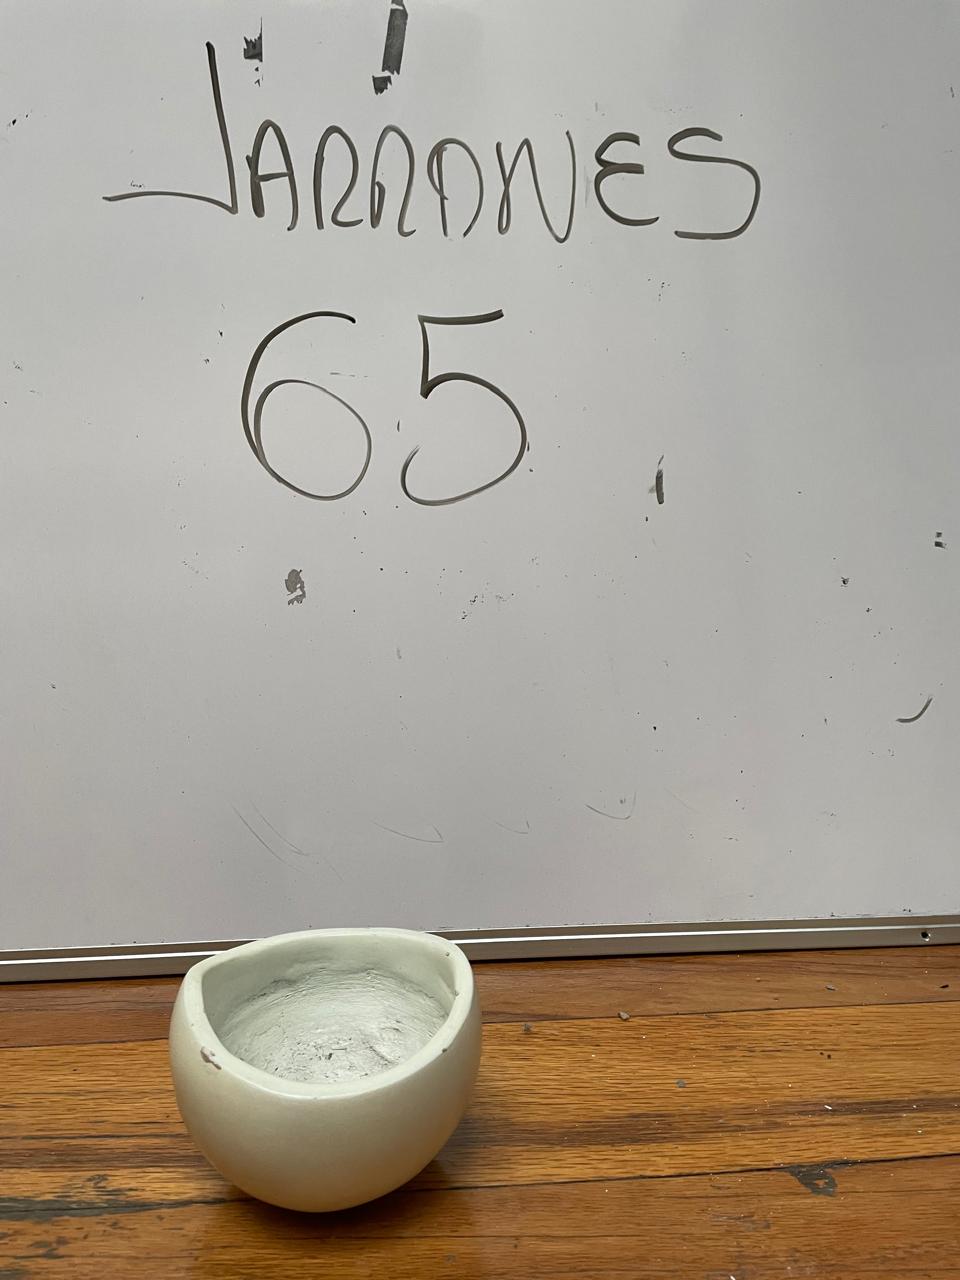 JARRONES
65